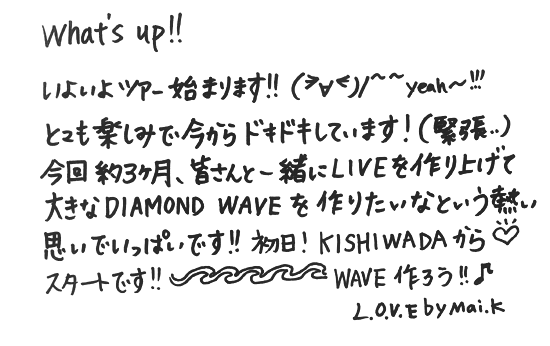 What's up!!
いよいよツアー始まります!! (≧∀≦)/~~yeah~!!!
とても楽しみで今からドキドキしています!(緊張..)
今回約3ヶ月、皆さんと一緒にLIVEを作り上げて
大きなDIAMOND WAVEを作りたいなという熱い
思いでいっぱいです!! 初日! KISHIWADAから♡
スタートです!! WAVE作ろう!!♪
L.O.V.E by Mai.K